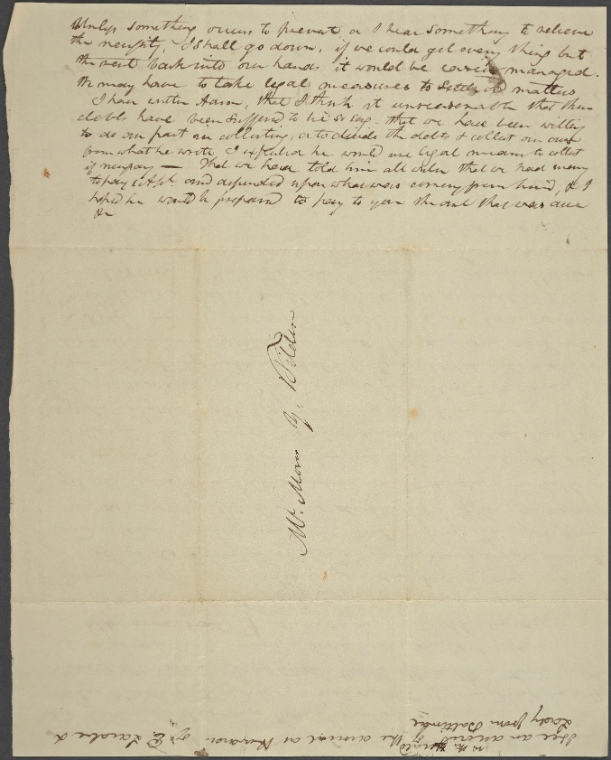 Unless something occurs to prevent or I hear something to relieve
the necessity, I shall go down, if we could get every thing but
the rest back into our hands it would be easily managed.
We may have to take legal measures to settle matters
I have written Aaron, that I think it unreasonable that these
debts have been suffered to lie so long, that we have been willing
to do our part in collecting, or to divide the debts & collect our own
from what he wrote I expected he would use legal means to collect
if necessary — That we have told him all when that we had money
to pay 1st Apl. and depended upon what was coming from him, & I
hoped he would be prepared to pay to you the one that was due
&c
Mr. Moses Y. Tilden
I see an account in the Herald of the arrival at Havana of E. Laird &
Lady from Baltimore